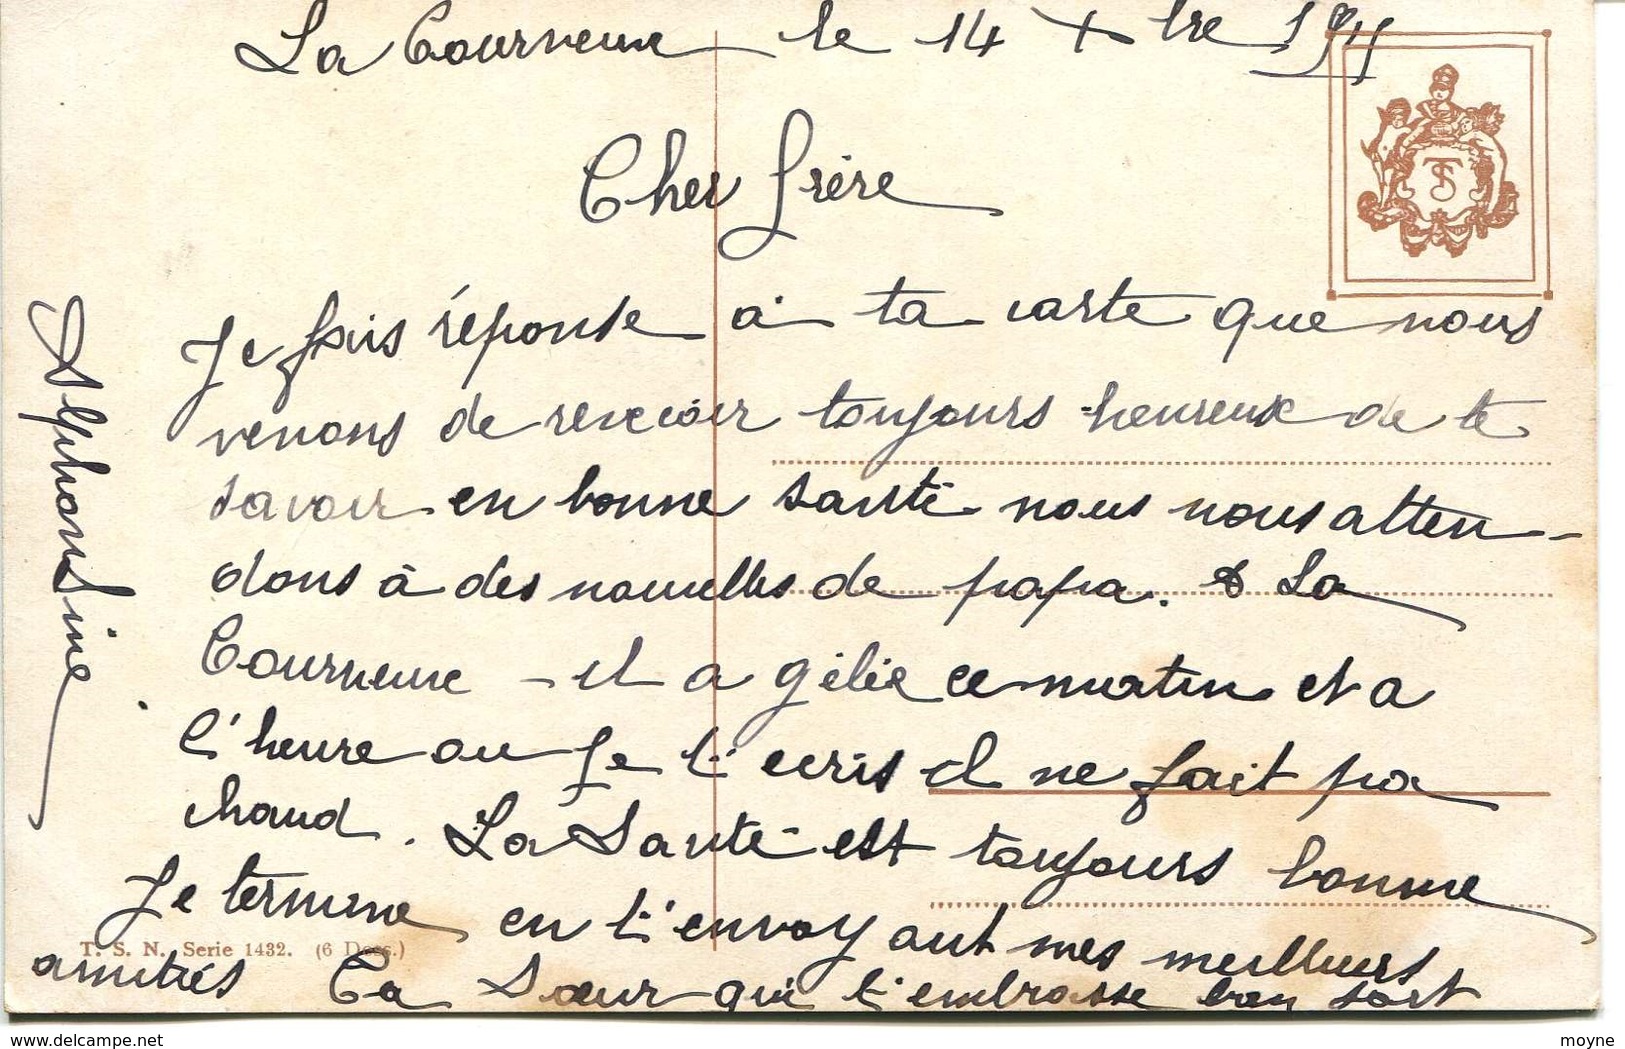 La Courneuve le 14 Xbre 1911
Cher frère
Je fais réponse a ta carte que nous
venons de recevoir toujours heureux de te
savoir en bonne santé nous nous atten-
dons à des nouvelles de papa. & La
Courneuve - il a gélée ce matin et a
l'heure ou je t'ecris il ne fait pa
chaud. La Santé est toujours bonne
Je termine en t'envoyant mes meilleurs
T. S. N. Serie 1432. (6 Dess.)
amitiés Ta Sœur qui t'embrasse bien fort
Alphonsine
TS
delcampe.net
moyne